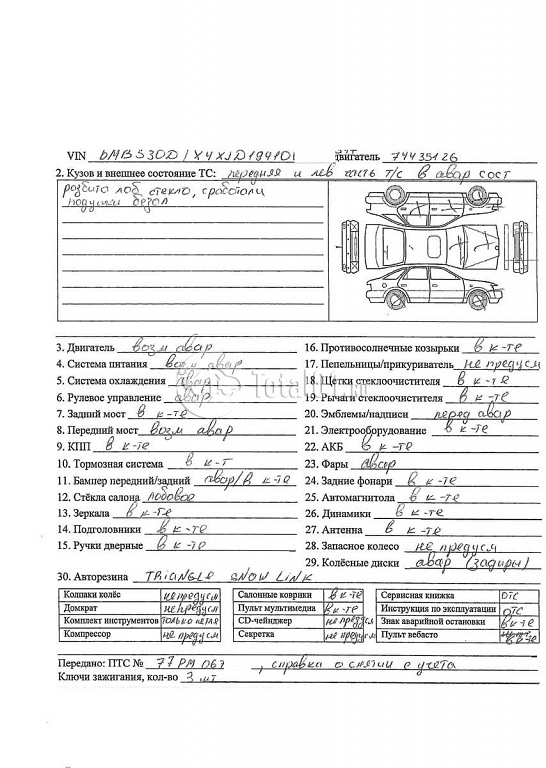 VIN БМВ 530D / X4XJD194101 двигатель 74435126
2. Кузов и внешнее состояние ТС: передняя и лев часть т/с в авар сост
разбито лоб. стекло, сработали
подушки безоп
3. Двигатель возм авар
4. Система питания возм авар
5. Система охлаждения авар
6. Рулевое управление авар
7. Задний мост в к-те
8. Передний мост возм авар
9. КПП в к-те
10. Тормозная система в к-т
11. Бампер передний/задний авар/в к-те
12. Стёкла салона лобовое
13. Зеркала в к-те
14. Подголовники в к-те
15. Ручки дверные в к-те
16. Противосолнечные козырьки в к-те
17. Пепельницы/прикуриватель не предусм
18. Щётки стеклоочистителя в к-те
19. Рычаги стеклоочистителя в к-те
20. Эмблемы/надписи перед авар
21. Электрооборудование в к-те
22. АКБ в к-те
23. Фары авар
24. Задние фонари в к-те
25. Автомагнитола в к-те
26. Динамики в к-те
27. Антенна в к-те
28. Запасное колесо не предусм
29. Колёсные диски авар (задиры)
30. Авторезина TRIANGLE SNOW LINK
Колпаки колёс не предусм
Домкрат не предусм
Комплект инструментов только петля
Компрессор не предусм
Салонные коврики в к-те
Пульт мультимедиа в к-те
CD-чейнджер не предусм
Секретка не предусм
Сервисная книжка отс
Инструкция по эксплуатации отс
Знак аварийной остановки в к-те
Пульт вебасто в к-те
Передано: ПТС № 77 РМ 067 , справка о снятии с учета
Ключи зажигания, кол-во 3 шт
Total